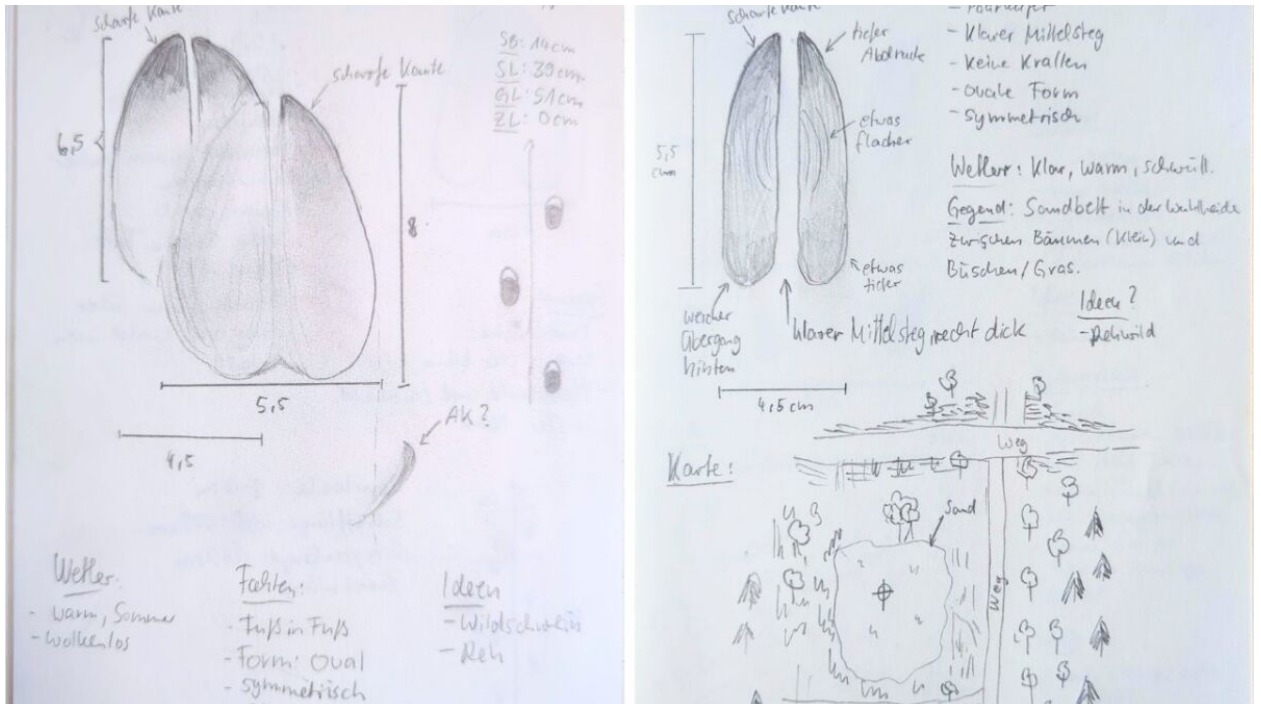 scharfe Kante
6,5
scharfe Kante
SB: 14cm
SL: 39cm
GL: 51cm
ZL: 0cm
8
5,5
4,5
AK?
Wetter:
- warm, Sommer
- wolkenlos
Fährten:
- Fuß in Fuß
- Form: oval
- symmetrisch
Ideen
- Wildschwein
- Reh
scharfe Kante
tiefer
Abdruck
etwas
flacher
5,5
cm
etwas
tiefer
weicher
Übergang
hinten
klarer Mittelsteg recht dick
4,5 cm
- Klarer Mittelsteg
- keine Krallen
- ovale Form
- symmetrisch
Wetter: Klar, warm, schwül.
Gegend: Sandbett in der
zwischen Bäumen (klein) und
Büschen/Gras.
Ideen?
- Rehwild
Karte:
Weg
Sand
Weg